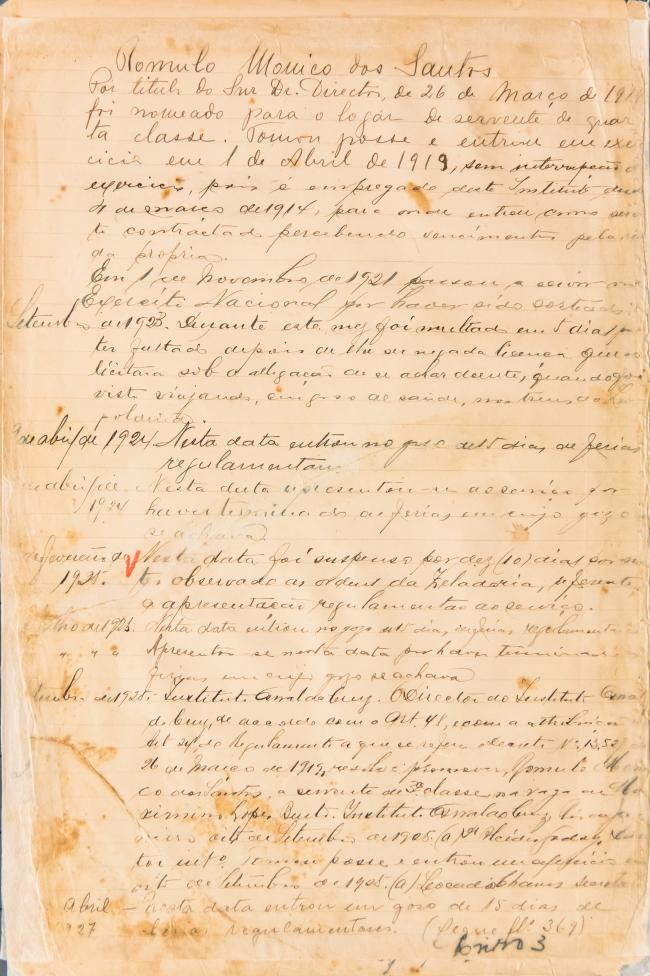 Romulo Monico dos Santos
Por titulo do Snr Dr. Director, de 26 de Março de 1919
foi nomeado para o logar de servente de quar
ta classe. Tomou posse e entrou em exer
cicio em 1 de Abril de 1919, sem interrupção
exercicio, pois é empregado deste Instituto desde
4 de março de 1914, para onde entrou como
contractad percebendo vencimentos pela
da propria.
Em 1 de Novembro de 1921 passou a servir no
Exercito Nacional por haver sido sorteado
Setembro de 1923. Durante este mez foi multado em 5 dias por
ter faltado depois de lhe ser negada licença que so
licitára sob a allegação de se achar doente, quando foi
visto viajando, em goso de saúde, nos trens da Leo
poldina.
de abril de 1924 Nesta data entrou no goso de 15 dias de ferias
regulamentares
de abril de Nesta data apresentou-se ao serviço por
1924 haver terminado as ferias em cujo gozo
se achava
de fevereiro de Nesta data foi suspenso por dez (10) dias por não
1925. ter observado as ordens da Zeladoria, referente
a apresentação regulamentar ao serviço.
de 1925. Nesta data entrou no gozo de 15 dias de ferias regulamentares
" " " Apresentou-se nesta data por haver terminado
ferias em cujo gozo se achava
Setembro de 1925. Instituto Oswaldo Cruz. O Director do Instituto Oswal
do Cruz, de accordo com o Art. 48, e com a attribuição
Art 24 do Regulamento a que se refere o Decreto Nº 13.52
26 de Março de 1919, resolve promover, Romulo Moni
co dos Santos, a servente de 3ª classe, na vaga de Ma
ximino Lopes. Instituto Oswaldo Cruz,
oito de Setembro de 1925. (a)
tor intº. Tomou posse e entrou em exercicio em
oito de Setembro de 1925. (a) Leocadio Chaves
Abril — Nesta data entrou em goso de 15 dias de
927 ferias regulamentares. (Segue fls. 369)
Livro 3